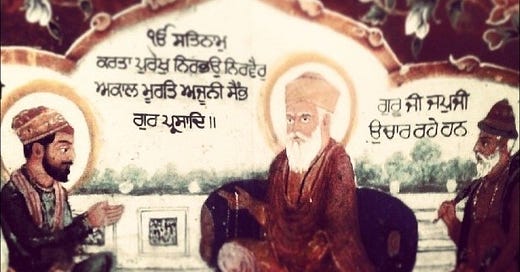 ੴ ਸਤਿਨਾਮੁ
ਕਰਤਾ ਪੁਰਖੁ ਨਿਰਭਉ ਨਿਰਵੈਰੁ
ਅਕਾਲ ਮੂਰਤਿ ਅਜੂਨੀ ਸੈਭੰ
ਗੁਰ ਪ੍ਰਸਾਦਿ॥
ਗੁਰੂ ਜੀ ਜਪੁਜੀ
ਉਚਾਰ ਰਹੇ ਹਨ